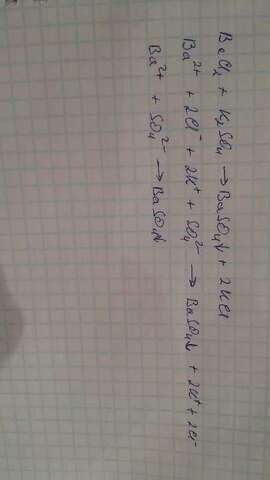 BaCl₂ + K₂SO₄ → BaSO₄↓ + 2KCl
Ba²⁺ + 2Cl⁻ + 2K⁺ + SO₄²⁻ → BaSO₄↓ + 2K⁺ + 2Cl⁻
Ba²⁺ + SO₄²⁻ → BaSO₄↓